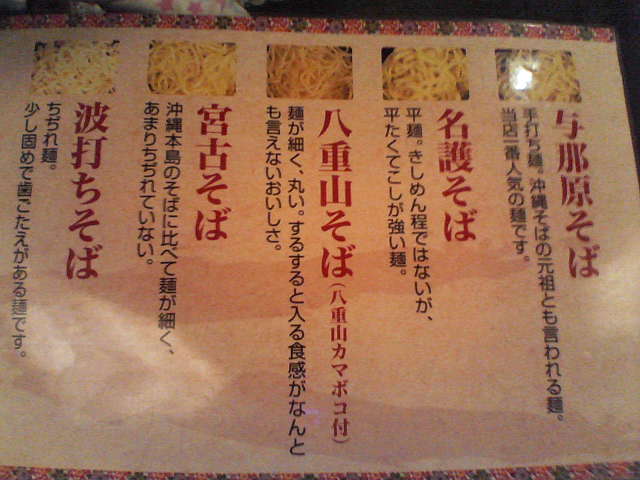 与那原そば
手打ち麺。沖縄そばの元祖とも言われる麺。
当店一番人気の麺です。
名護そば
平麺。きしめん程ではないが、
平たくてこしが強い麺。
八重山そば(八重山カマボコ付)
麺が細く、丸い。するすると入る食感がなんと
も言えないおいしさ。
宮古そば
沖縄本島のそばに比べて麺が細く、
あまりちぢれていない。
波打ちそば
ちぢれ麺。
少し固めで歯ごたえがある麺です。